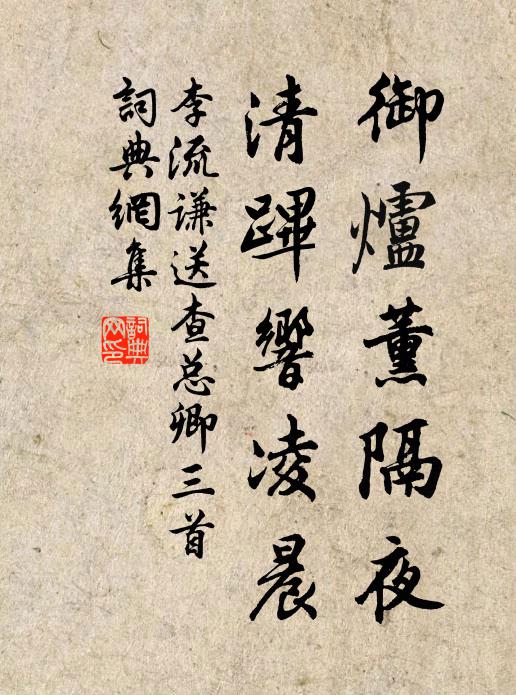 御爐薰隔夜
清蹕響凌晨
李流谦送查总卿三首
詞典網集
詞典
网印